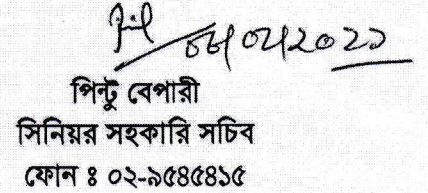 ০৮/০২/২০২১
পিন্টু বেপারী
সিনিয়র সহকারি সচিব
ফোন ঃ ০২-৯৫৪৫৪১৫